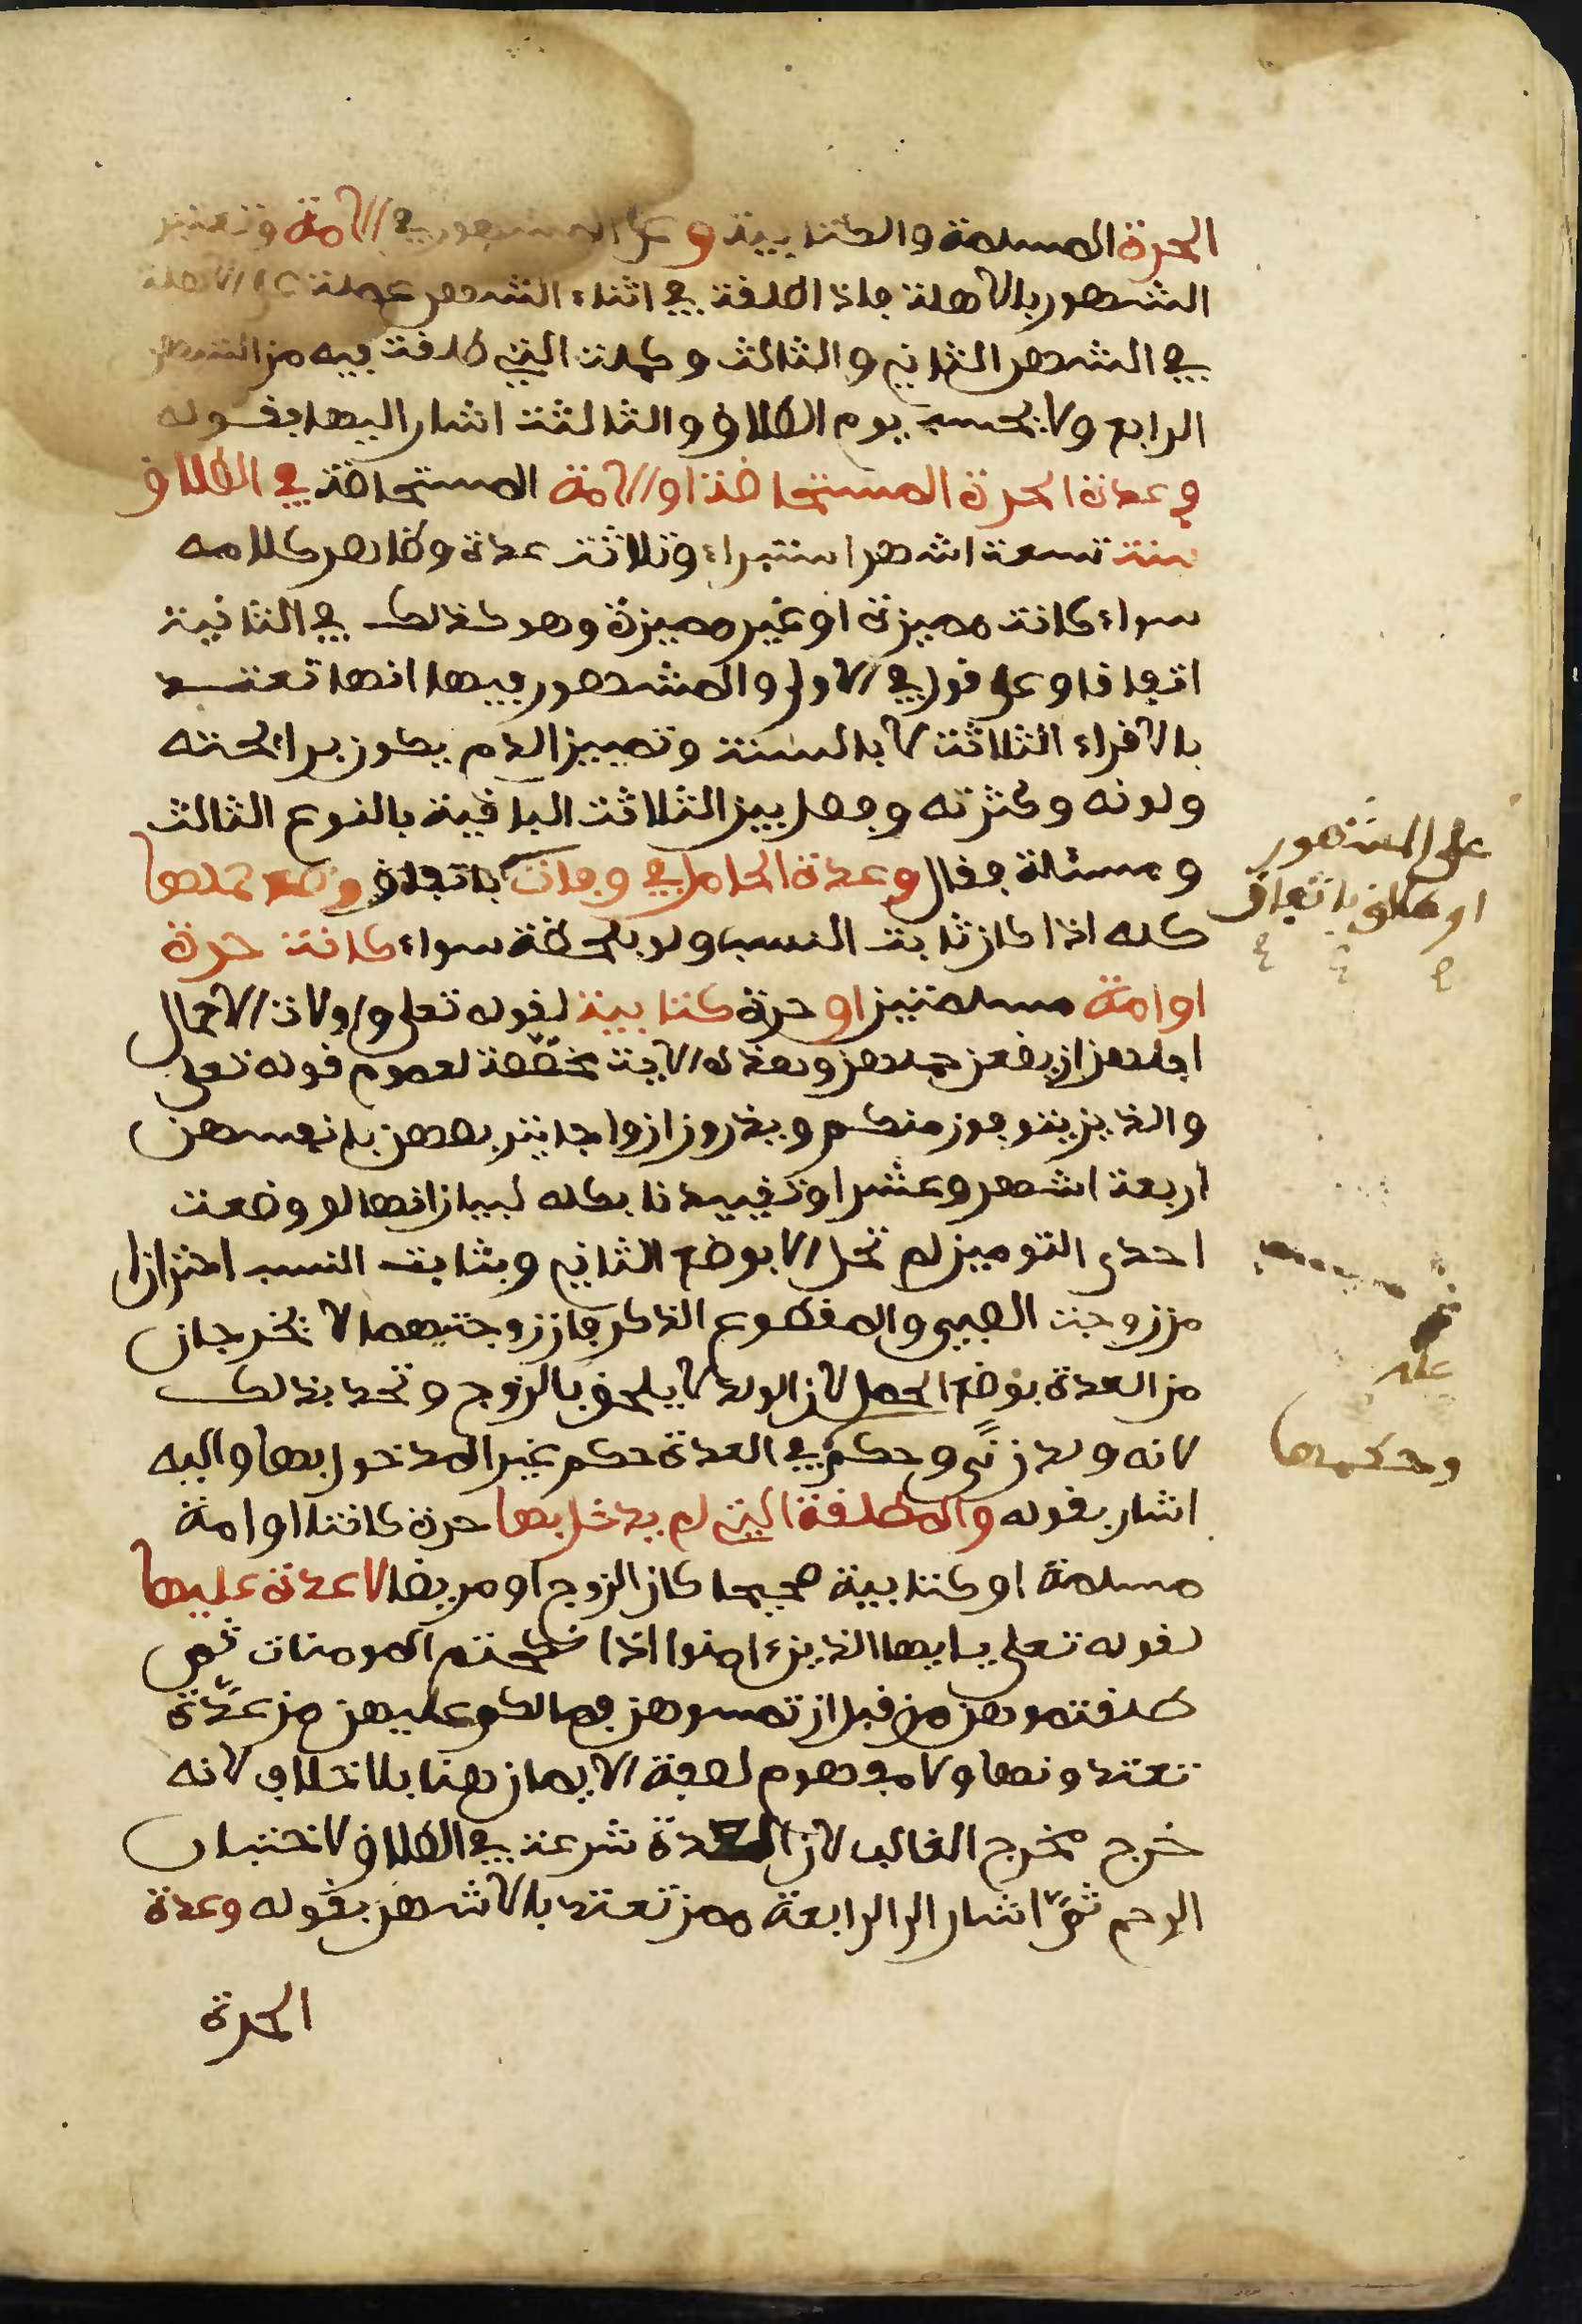 الحرة المسلمة والكتابية وعلى المشهور في الامة وتعتبر
الشهور بالاهلة فاذا طلقت في اثناء الشهر عملت على الاهلة
في الشهر الثاني والثالث وكملت التي طلقت فيه من الشهر
الرابع ولا يحسب يوم الطلاق والثالثة اشار اليها بقوله
وعدة الحرة المستحاضة او الامة المستحاضة في الطلاق
سنة تسعة اشهر استبراء وثلاثة عدة وظاهر كلامه
سواء كانت مميزة او غير مميزة وهو كذلك في الثانية
اتفاقا وعلى قول في الاولى والمشهور فيها انها تعتد
بالاقراء الثلاثة لا بالسنة وتمييز الدم يكون برائحته
ولونه وكثرته وفصل بين الثلاثة الباقية بالنوع الثالث
ومسئلة فقال وعدة الحامل في وفات باتفاق وضع حملها
على المشهور
او طلاق باتفاق
كله اذا كان ثابت النسب ولو بلحظة سواء كانت حرة
او امة مسلمتين او حرة كتابية لقوله تعلى واولات الاحمال
اجلهن ان يضعن حملهن وهذه الاية مخصصة لعموم قوله تعلى
والذين يتوفون منكم ويذرون ازواجا يتربصن بانفسهن
اربعة اشهر وعشرا وتقييدنا بكله لبيان انها لو وضعت
احدى التومين لم تحل الا بوضع الثاني وبثابت النسب احترازا
من زوجة الصبي والمقطوع الذكر فان زوجتيهما لا تخرجان
من العدة بوضع الحمل لان الولد لا يلحق بالزوج وتحد بذلك
لانه ولد زنى وحكم في العدة حكم غير المدخول بها واليه
وحكمها
اشار بقوله والمطلقة التي لم يدخل بها حرة كانت او امة
مسلمة او كتابية صحيحا كان الزوج او مريضا لا عدة عليها
لقوله تعلى يايها الذين ءامنوا اذا نكحتم المومنات ثم
طلقتموهن من قبل ان تمسوهن فما لكم عليهن من عدة
تعتدونها ولا مفهوم لصفة الايمان هنا بلا خلاف لانه
خرج مخرج الغالب لان العدة شرعت في الطلاق لاختبار
الرحم ثم اشار الى الرابعة ممن تعتد بالاشهر بقوله وعدة
الحرة